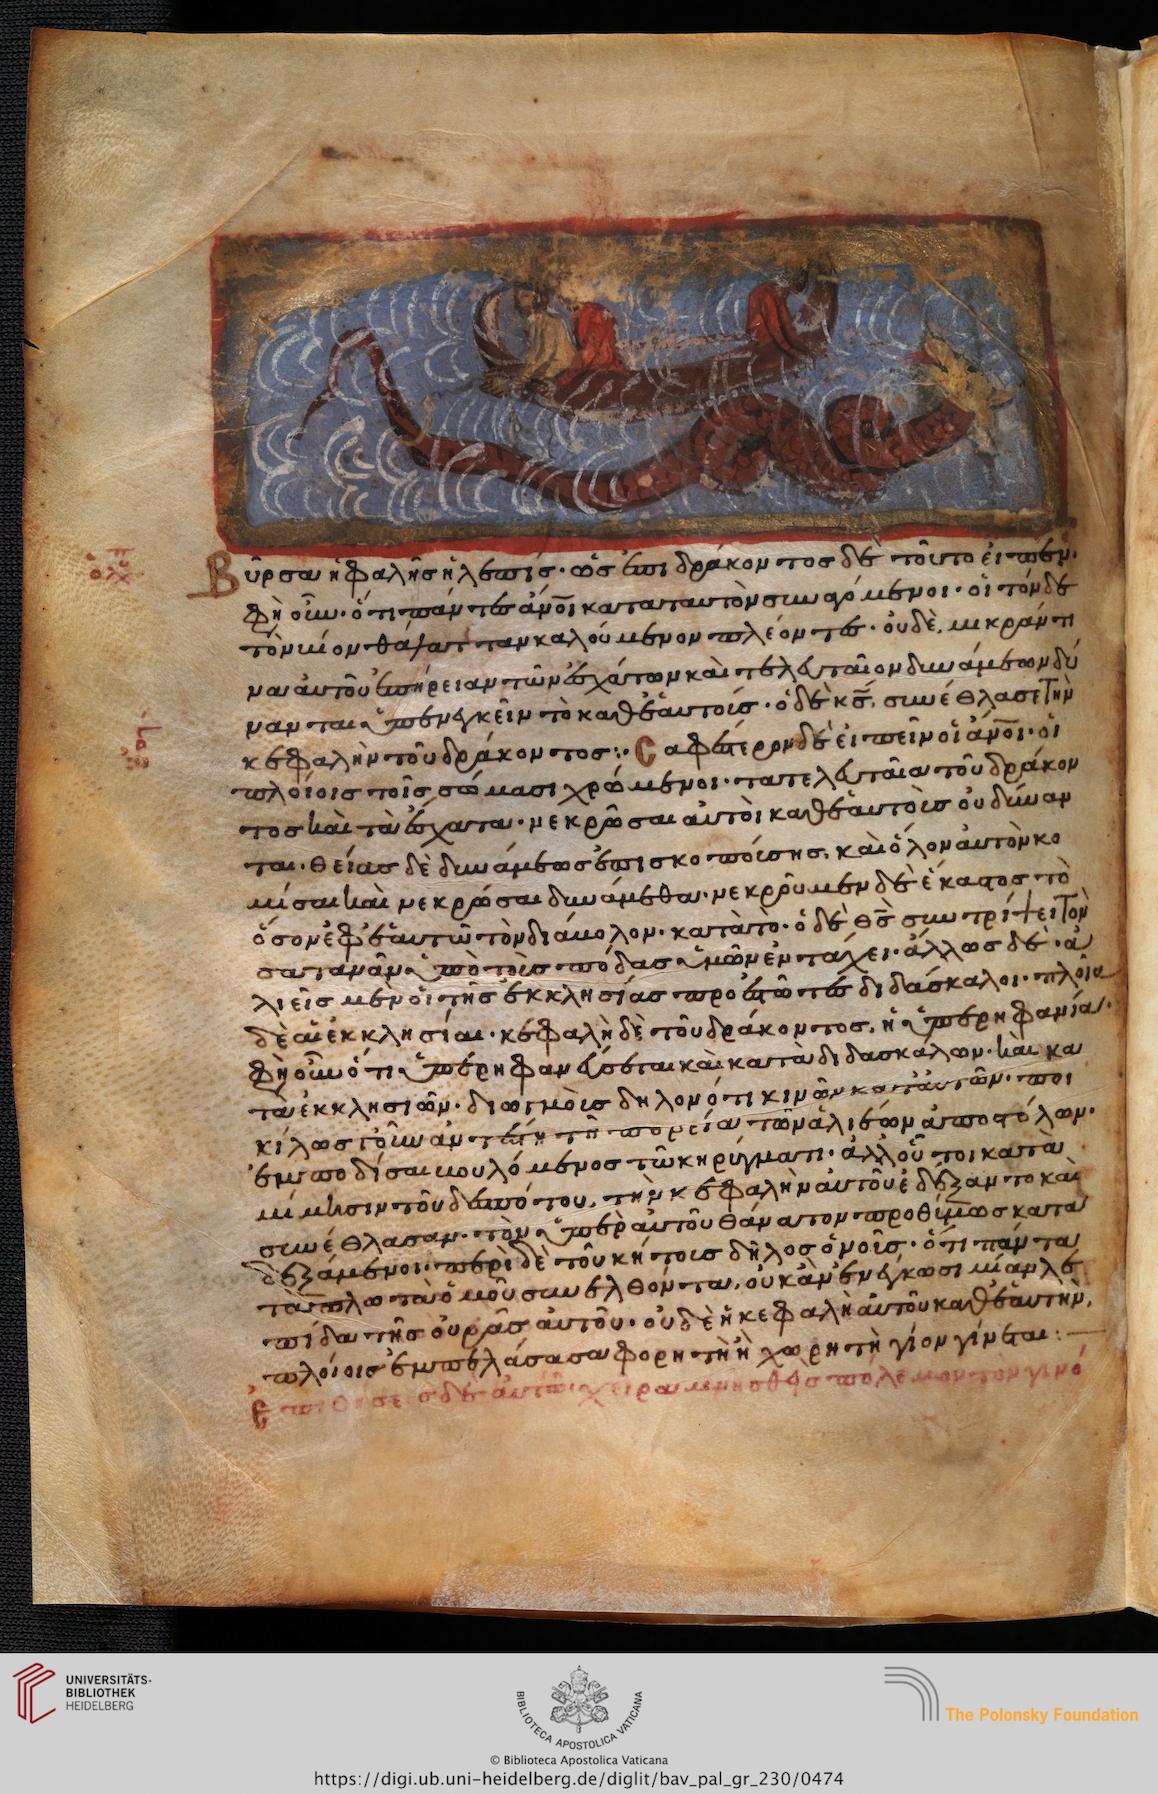 Βύρσα ἡ φαλὴς ἡ λεπίς· ὡς ἐπι δράκοντος δὲ τοῦτο εἶπεν·
φὴ οὖν· ὅτι πάντες ἄνοι κατα ταυτὸν συναγόμενοι· οἱ τόνδε
τὸν βίον θάλατταν καλούμενον πλέοντες· οὐδὲ, μικράν τι
να αὐτοῦ ἐπήρειαν τῶν ἐσχάτων καὶ τελευταῖον δυνάμεων δύ
νανται ὑπενεγκεῖν τὸ καθ' ἑαυτοίς· ὁ δὲ κς, συνέθλασε τὴν
κεφαλὴν τοῦ δράκοντος:· Σαφέστερον δὲ εἰπεῖν οἱ ἄνοι· οἱ
πλοίοις τοῖς σώμασι χρώμενοι· τα τελευταῖα τοῦ δράκον
τος καὶ τὰ ἔσχατα· νεκρῶσαι αὐτοὶ καθ' ἑαυτοὶς οὐ δύναν
ται· θείας δὲ δυνάμεως ἐπισκοπούσης, καὶ ὅλον αὐτὸν κο
μίσαι καὶ νεκρώσαι δυνάμεθα· νεκροῦμεν δὲ ἕκαστος τὸ
ὅσον ἐφ' ἑαυτῶ τὸν διάβολον· κατὰ τὸ· ὁ δὲ θς συντρίψει τὸν
σατανᾶν ὑπὸ τοὶς πόδας ὑμῶν ἐν τάχει· ἄλλως δὲ· ἁ
λιεῖς μὲν οἱ τῆς ἐκκλησίας προεστῶτες διδάσκαλοι· πλοῖα
δὲ αἱ ἐκκλησίαι· κεφαλὴ δὲ τοῦ δράκοντος, ἡ ὑπερηφανία·
φὴ οὖν ὅτι ὑπερηφανεύεται καὶ κατὰ διδασκάλων· καὶ κα
τὰ ἐκκλησιῶν· διωγμοὶς δηλονότι κινῶν κατ' αὐτῶν· ποι
κίλως γοῦν ἀντέστη τῆ πορεία τῶν ἁλιέων ἀποστόλων·
ἐμποδίσαι βουλόμενος τῶ κηρύγματι· ἀλλ' οὗτοι κατα
μίμησιν τοῦ δεσπότου, τὴν κεφαλὴν αὐτοῦ ἐδέξαντο καὶ
συνέθλασαν· τὸν ὑπὲρ αὐτοῦ θάνατον προθύμως κατα
δεξάμενοι· περὶ δὲ τοῦ κήτους δῆλος ὁ νοῦς· ὅτι πάντα
τὰ πλωτὰ ὁμοῦ συνελθόντα, οὐκ ἂν ἐνέγκωσι μίαν λε
πίδα τῆς οὐρᾶς αὐτοῦ· οὐδὲ ἡ κεφαλὴ αὐτοῦ καθ' ἑαυτὴν,
πλοίοις ἐμπελάσασα φορητὴ ἢ χωρητὴ γίον γίνεται:
ἐπιθήσεις δὲ αὐτῶ χεῖρα μνησθεὶς πόλεμον τὸν γινό
UNIVERSITÄTS-
BIBLIOTHEK
HEIDELBERG
BIBLIOTECA APOSTOLICA VATICANA
The Polonsky Foundation
© Biblioteca Apostolica Vaticana
https://digi.ub.uni-heidelberg.de/diglit/bav_pal_gr_230/0474